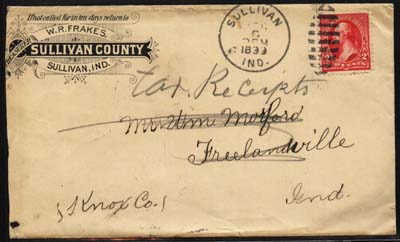 If not called for in ten days return to
W. R. FRAKES,
SULLIVAN COUNTY
SULLIVAN, IND.
SULLIVAN
IND.
Tax Receipts
Freelandville
(Knox Co.)
Ind.